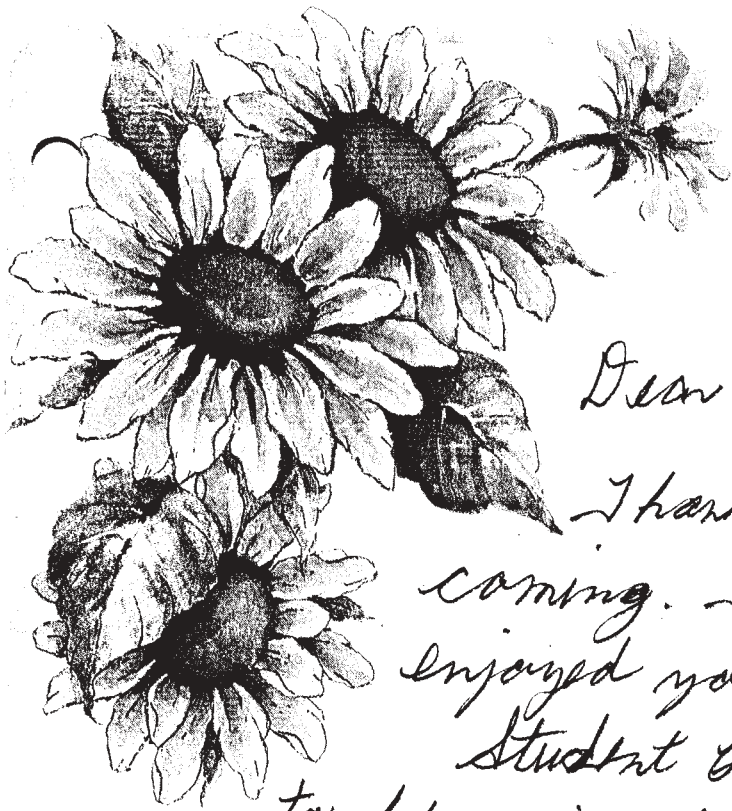 Dear
Than
coming.
enjoyed yo
Student